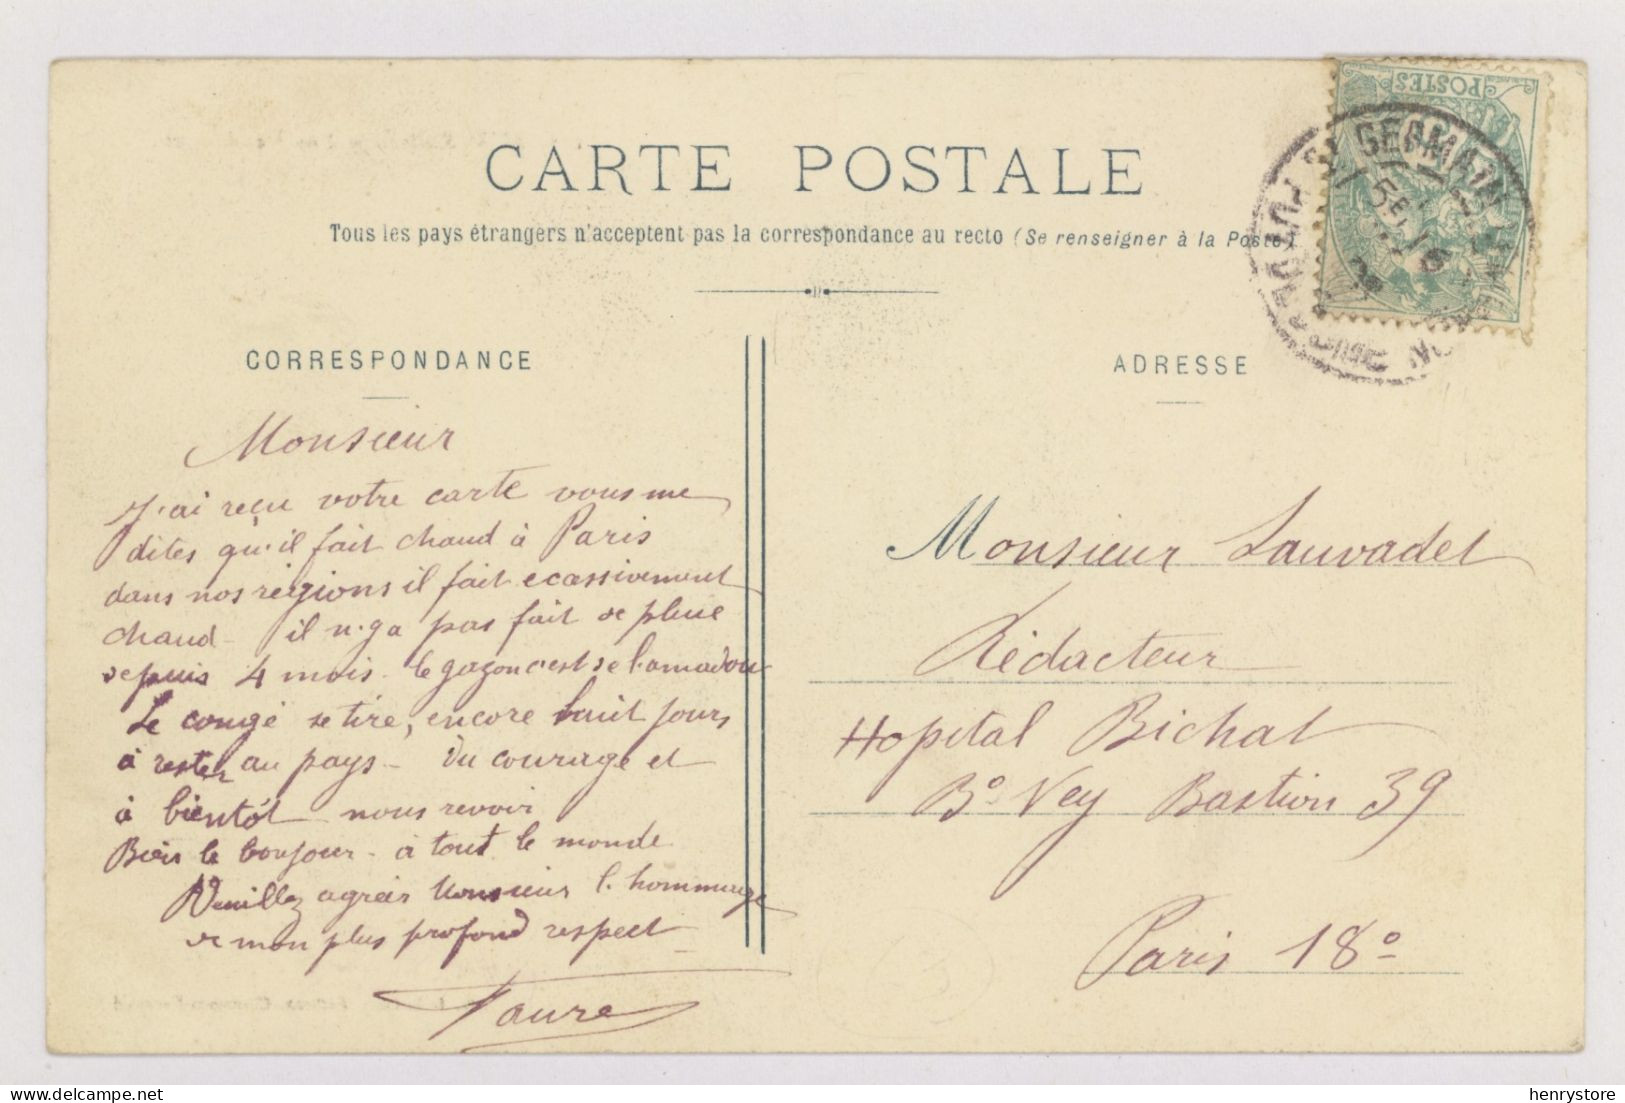 CARTE POSTALE
Tous les pays étrangers n'acceptent pas la correspondance au recto (Se renseigner à la Poste)
CORRESPONDANCE
Monsieur
J'ai reçu votre carte vous me
dites qu'il fait chaud à Paris
dans nos régions il fait ecassivement
chaud - il n'y a pas fait de pluie
depuis 4 mois - le gazon c'est de l'amadou
Le congé se tire, encore huit jours
à rester au pays - Du courage et
à bientôt nous revoir
Bien le bonjour - à tout le monde
Veuillez agréer Monsieur l'hommage
de mon plus profond respect
Faure
ADRESSE
Monsieur Lauvadet
Rédacteur
Hopital Bichat
Bd Ney Bastion 39
Paris 18e
POSTES
ST GERMAIN
PUY DE
henrystore